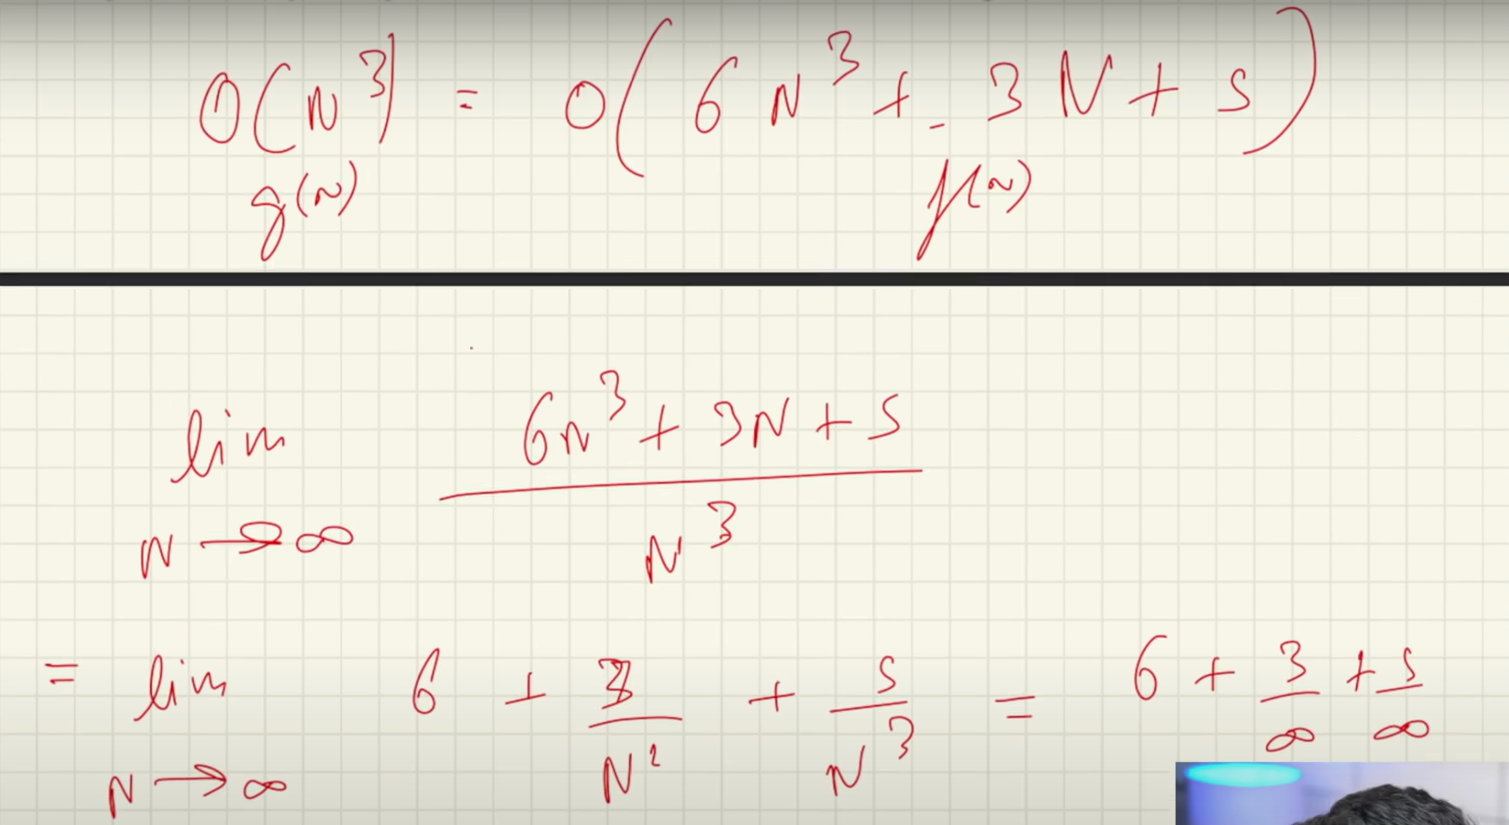 O(N³) = O(6N³ + 3N + 5)
g(N) f(N)
lim 6N³ + 3N + 5
N → ∞ N³
= lim 6 + 3/N² + 5/N³ = 6 + 3/∞ + 5/∞
N → ∞